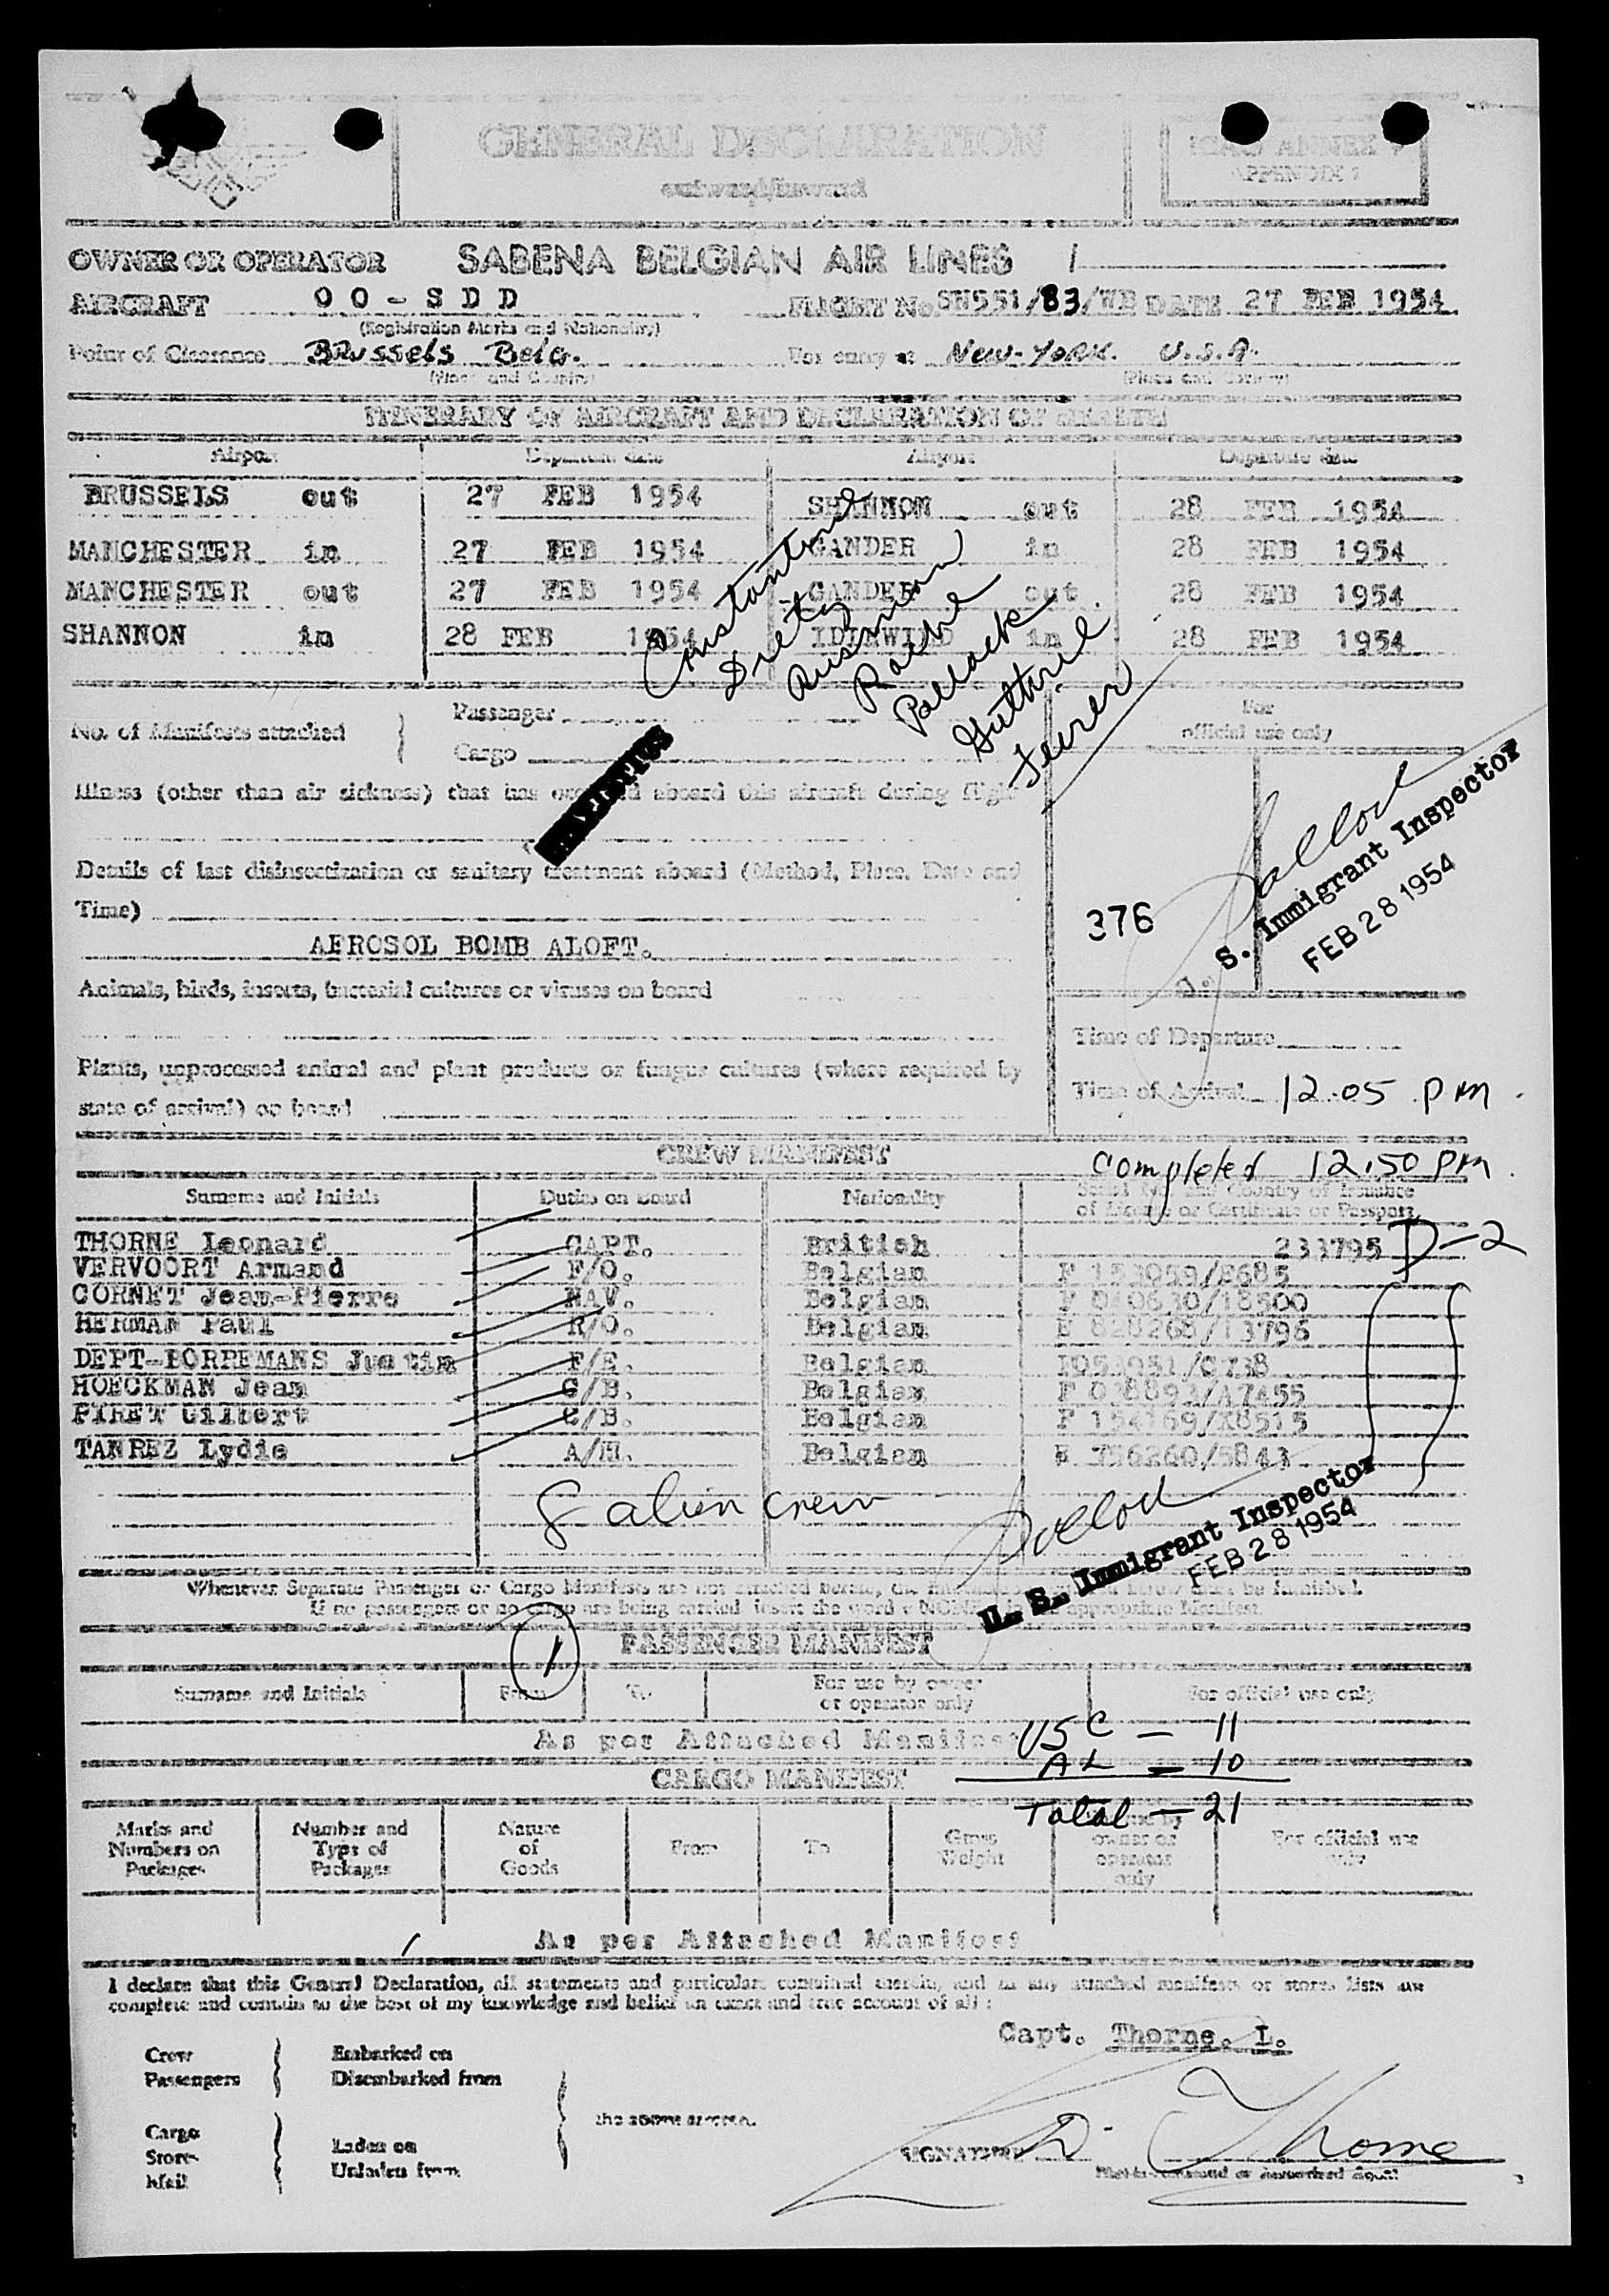 GENERAL DECLARATION
outward/inward
ICAO ANNEX 9
APPENDIX 1
OWNER OR OPERATOR SABENA BELGIAN AIR LINES /
AIRCRAFT OO-SDD FLIGHT No. SN551/83/WB DATE 27 FEB 1954
(Registration Marks and Nationality)
Point of Clearance Brussels Belg. For entry at New-York. U.S.A.
(Place and Country) (Place and Country)
ITINERARY OF AIRCRAFT AND DECLARATION OF HEALTH
Airport Departure date Airport Departure date
BRUSSELS out 27 FEB 1954 SHANNON out 28 FEB 1954
MANCHESTER in 27 FEB 1954 GANDER in 28 FEB 1954
MANCHESTER out 27 FEB 1954 GANDER out 28 FEB 1954
SHANNON in 28 FEB 1954 IDLEWILD in 28 FEB 1954
Constantine
Dietz
Pollack
Guthrie
No. of Manifests attached
Passenger
Cargo
For
official use only
Illness (other than air sickness) that has occurred aboard this aircraft during flight
Details of last disinsectization or sanitary treatment aboard (Method, Place, Date and
Time)
AEROSOL BOMB ALOFT.
376
S. Immigrant Inspector
FEB 28 1954
Animals, birds, insects, bacterial cultures or viruses on board
Time of Departure
Plants, unprocessed animal and plant products or fungus cultures (where required by
state of arrival) on board
Time of Arrival 12.05 PM.
CREW MANIFEST
Completed 12.50 PM.
Surname and Initials Duties on Board Nationality Serial No. and Country of Issuance
of License or Certificate or Passport
THORNE Leonard CAPT. British 233795 D-2
VERVOORT Armand F/O. Belgian F 153059/E685
CORNET Jean-Pierre NAV. Belgian F 040630/18500
HERMAN Paul R/O. Belgian E 828268/13796
DEPT-BORREMANS Justin F/E. Belgian
HOECKMAN Jean C/B. Belgian F 038893/A7455
PIRET Gilbert C/B. Belgian F 154169/X8515
TANREZ Lydie A/H. Belgian E 756260/5843
8 alien crew
U. S. Immigrant Inspector
FEB 28 1954
Whenever Separate Passenger or Cargo Manifests are not attached hereto, the
If no passengers or no cargo are being carried insert the word « NONE » in the appropriate Manifest.
1
PASSENGER MANIFEST
Surname and Initials From To For use by owner
or operator only For official use only
As per Attached Manifest
USC - 11
AL - 10
Total - 21
CARGO MANIFEST
Marks and Numbers on Packages Number and Type of Packages Nature of Goods From To Gross Weight For use by owner or operator only For official use only
As per Attached Manifest
I declare that this General Declaration, all statements and particulars contained therein, and in any attached manifests or stores lists are
complete and contain to the best of my knowledge and belief an exact and true account of all :
Capt. Thorne. L.
Crew
Passengers
Embarked on
Disembarked from
the above aircraft.
Cargo
Stores
Mail
Laden on
Unladen from
SIGNATURE Thorne
Pilot-in-command or Authorized Agent